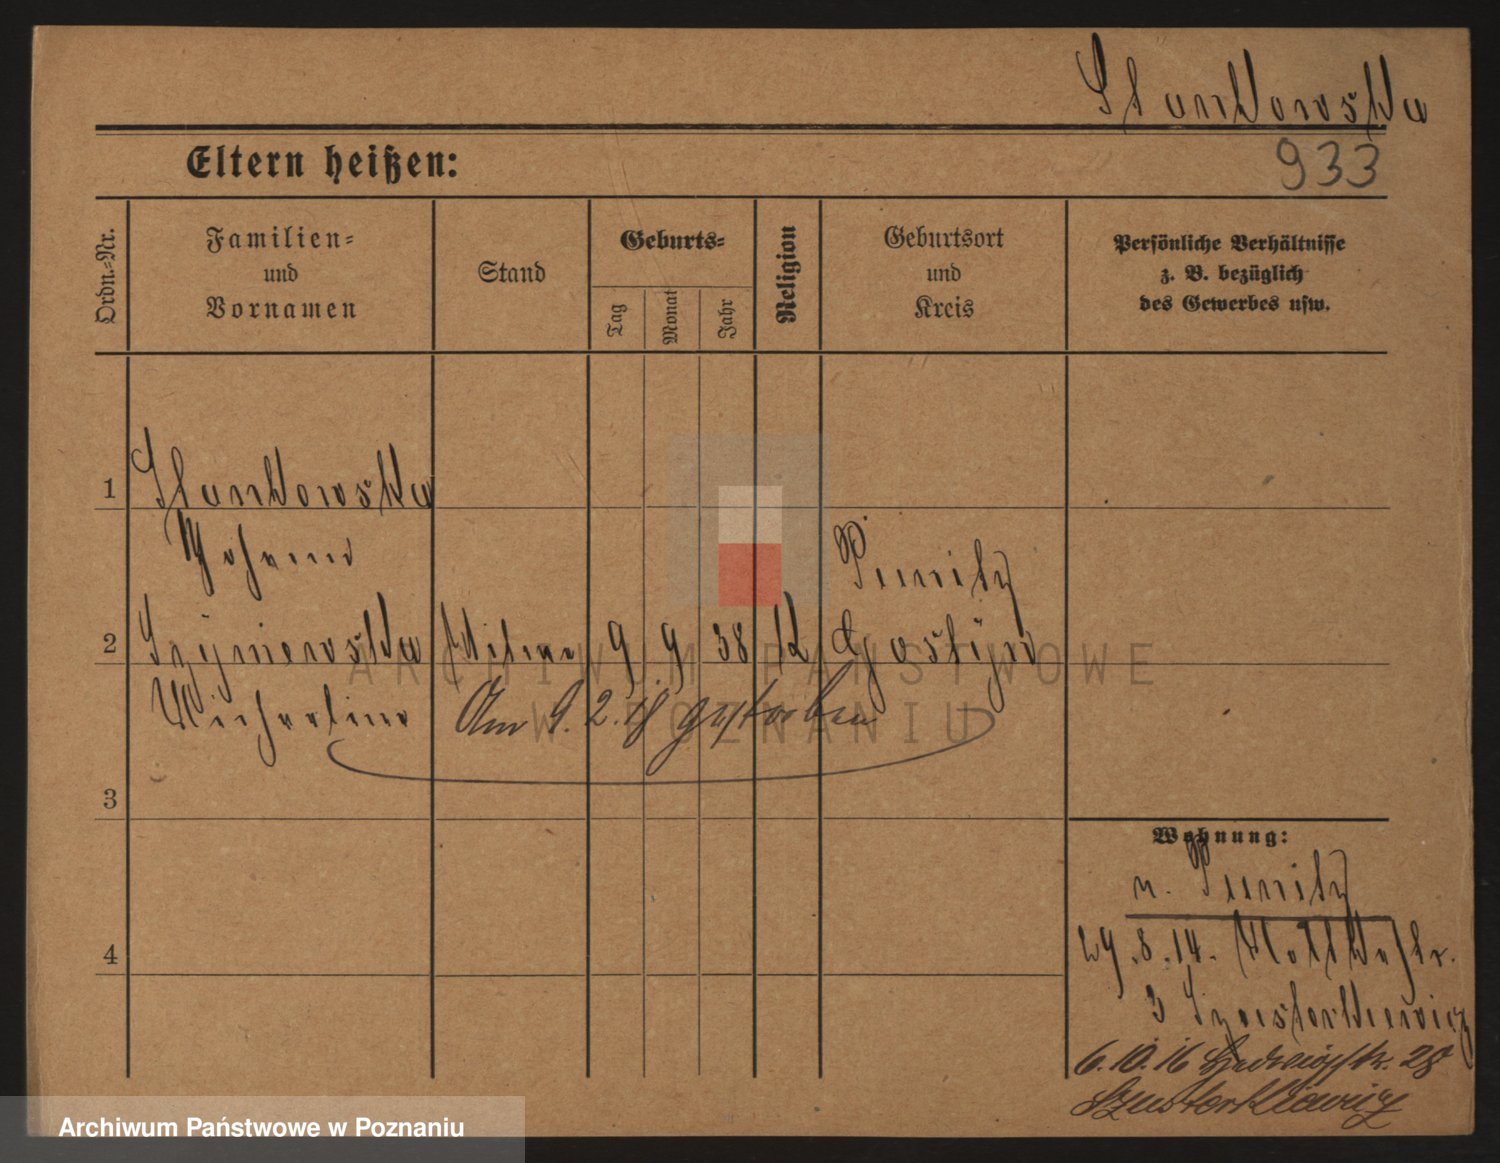 Stankowska
933
Eltern heißen:
Ordn.=Nr.
Familien=
und
Vornamen
Stand
Geburts=
Tag
Monat
Jahr
Religion
Geburtsort
und
Kreis
Persönliche Verhältnisse
z. B. bezüglich
des Gewerbes usw.
1 Stankowska
Johanna
Punitz
2 Szymierowska Witwe 9 9 38 K Gostyn
Michalina
Am 9. 2. 18 gestorben
3
Wohnung:
n. Punitz
4
29.8.14. Moltkestr.
3 Szusterkiewicz
6.10.16 Hedwigstr. 28
Szusterkiewicz
ARCHIWUM PAŃSTWOWE
W POZNANIU
Archiwum Państwowe w Poznaniu